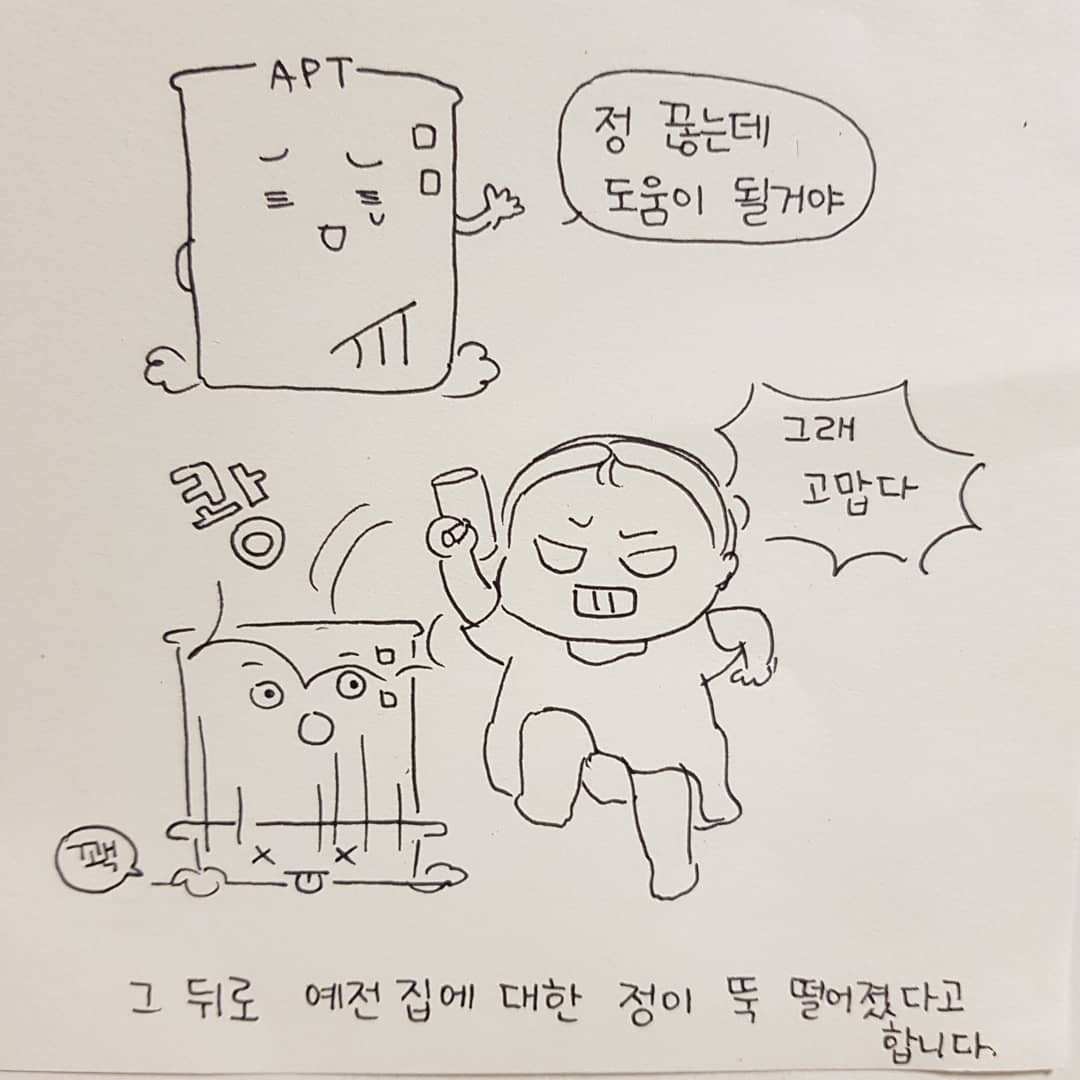 APT
정 끊는데
도움이 될거야
그래
고맙다
쾅
꽥
그 뒤로 예전 집에 대한 정이 뚝 떨어졌다고
합니다.